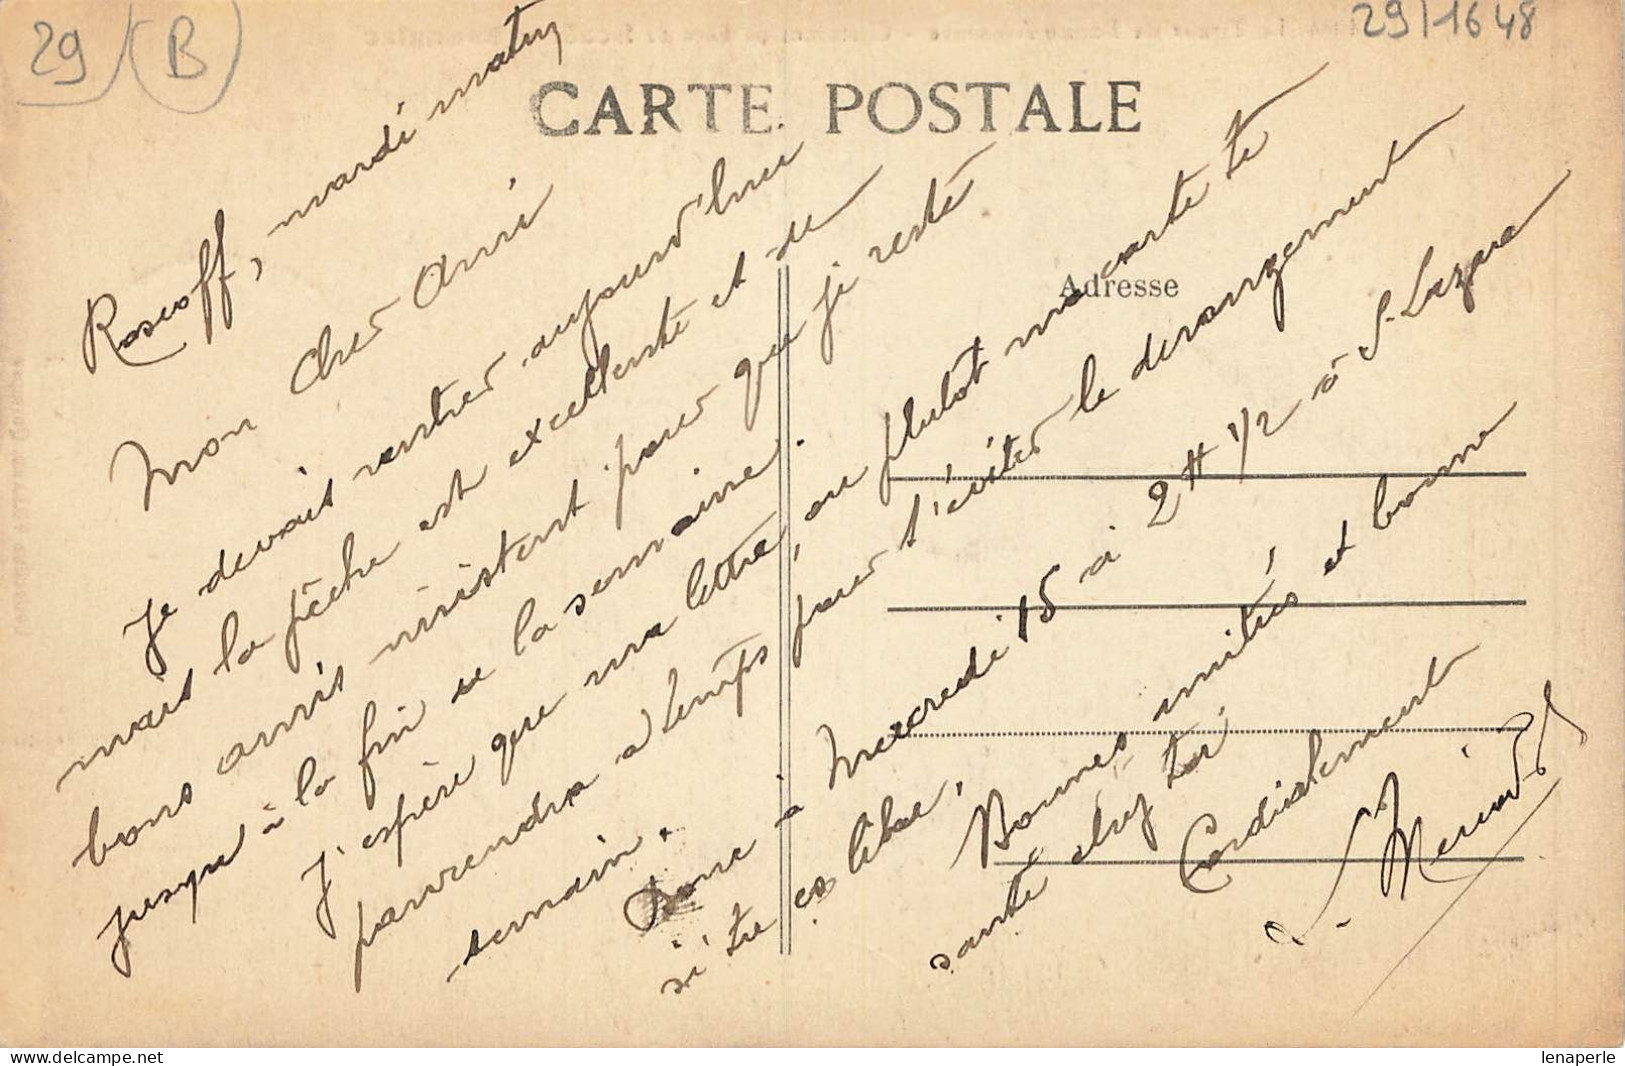 29 (B)
29/1648
CARTE POSTALE
Adresse
Roscoff, mardi matin
Mon cher Ami
Je devais rentrer aujourd'hui
mais la pêche est excellente et de
bons amis insistent pour que je reste
jusqu'à la fin de la semaine.
J'espère que ma lettre, ou plutot ma carte te
parviendra a temps pour t'éviter le derangement
demain.
Donc à Mercredi 15 a 2 H 1/2 à S. Lazare
si tu es libre,
Bonnes amitiés et bonne
santé chez toi
Cordialement
delcampe.net
lenaperle